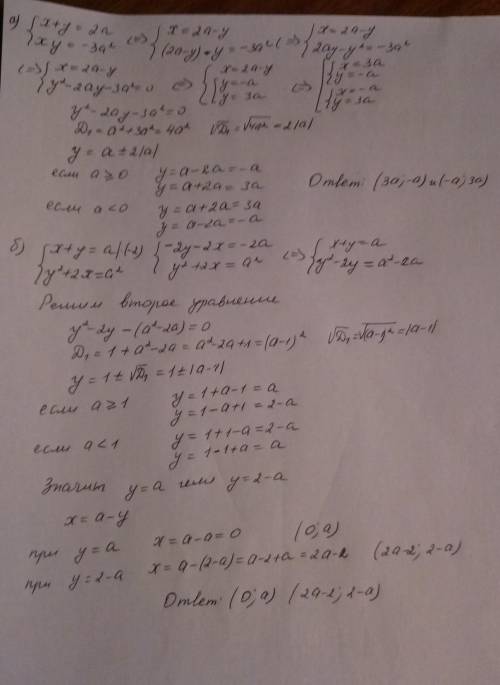 а) { x+y = 2a   xy = -3a² (=) { x = 2a-y   (2a-y)·y = -3a² (=) { x = 2a-y   2ay-y² = -3a²
(=) { x = 2a-y   y²-2ay-3a² = 0 (=) { x = 2a-y   [ y = -a   y = 3a (=) [ { x = 3a   y = -a   { x = -a   y = 3a
y²-2ay-3a² = 0
D₁ = a²+3a² = 4a²   √D₁ = √4a² = 2|a|
y = a ± 2|a|
если a ≥ 0   y = a-2a = -a
y = a+2a = 3a   Ответ: (3a; -a) и (-a; 3a)
если a < 0   y = a+2a = 3a
y = a-2a = -a
б) { x+y = a |(-2)   y²+2x = a²   { -2y-2x = -2a   y²+2x = a² (=) { x+y = a   y²-2y = a²-2a
Решим второе уравнение
y²-2y-(a²-2a) = 0
D₁ = 1+a²-2a = a²-2a+1 = (a-1)²   √D₁ = √(a-1)² = |a-1|
y = 1 ± √D₁ = 1 ± |a-1|
если a ≥ 1   y = 1+a-1 = a
y = 1-a+1 = 2-a
если a < 1   y = 1+1-a = 2-a
y = 1-1+a = a
Значит y = a или y = 2-a
x = a-y
при y = a   x = a-a = 0   (0; a)
при y = 2-a   x = a-(2-a) = a-2+a = 2a-2   (2a-2; 2-a)
Ответ: (0; a) (2a-2; 2-a)